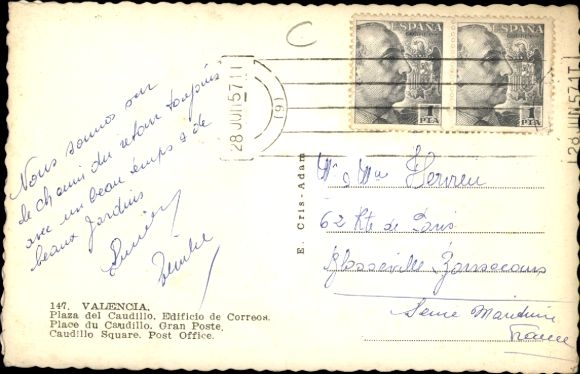 Nous sommes sur
le chemin du retour toujours
avec un beau temps & de
beaux Jardins
147. VALENCIA.
Plaza del Caudillo. Edificio de Correos.
Place du Caudillo. Gran Poste.
Caudillo Square. Post Office.
E. Cris-Adam
28 JUN 57 11
(9)
28 JUN 57 11
ESPAÑA
CORREOS
1
PTA
ESPAÑA
CORREOS
1
PTA
Mr & Mme Hervieu
62 Rte de Paris
Seine Maritime
France